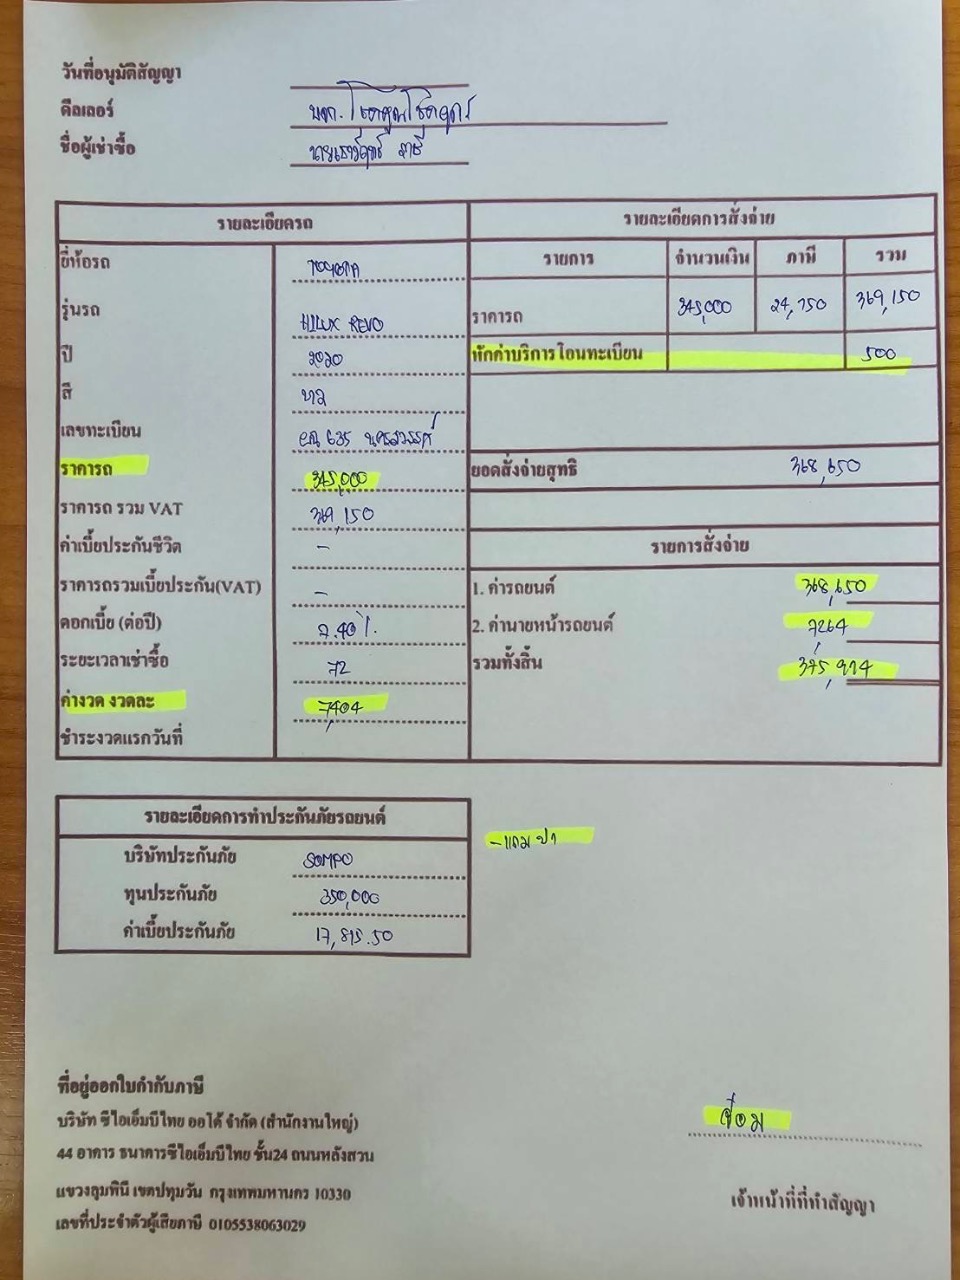 วันที่อนุมัติสัญญา
ดีลเลอร์ บจก.
ชื่อผู้เช่าซื้อ
รายละเอียดรถ
ยี่ห้อรถ TOYOTA
รุ่นรถ HILUX REVO
ปี 2020
สี ขาว
เลขทะเบียน 635 นครสวรรค์
ราคารถ 345,000
ราคารถ รวม VAT 369,150
ค่าเบี้ยประกันชีวิต -
ราคารถรวมเบี้ยประกัน(VAT) -
ดอกเบี้ย (ต่อปี) 7.40 %
ระยะเวลาเช่าซื้อ 72
ค่างวด งวดละ 7,404
ชำระงวดแรกวันที่
รายละเอียดการสั่งจ่าย
รายการ จำนวนเงิน ภาษี รวม
ราคารถ 345,000 24,150 369,150
หักค่าบริการโอนทะเบียน 500
ยอดสั่งจ่ายสุทธิ 368,650
รายการสั่งจ่าย
1. ค่ารถยนต์ 368,650
2. ค่านายหน้ารถยนต์ 7,264
รวมทั้งสิ้น 375,914
รายละเอียดการทำประกันภัยรถยนต์
บริษัทประกันภัย SOMPO
ทุนประกันภัย 350,000
ค่าเบี้ยประกันภัย 17,815.50
-แถม ป1
ที่อยู่ออกใบกำกับภาษี
บริษัท ซีไอเอ็มบีไทย ออโต้ จำกัด (สำนักงานใหญ่)
44 อาคาร ธนาคารซีไอเอ็มบีไทย ชั้น24 ถนนหลังสวน
แขวงลุมพินี เขตปทุมวัน กรุงเทพมหานคร 10330
เลขที่ประจำตัวผู้เสียภาษี 0105538063029
เจ้าหน้าที่ที่ทำสัญญา